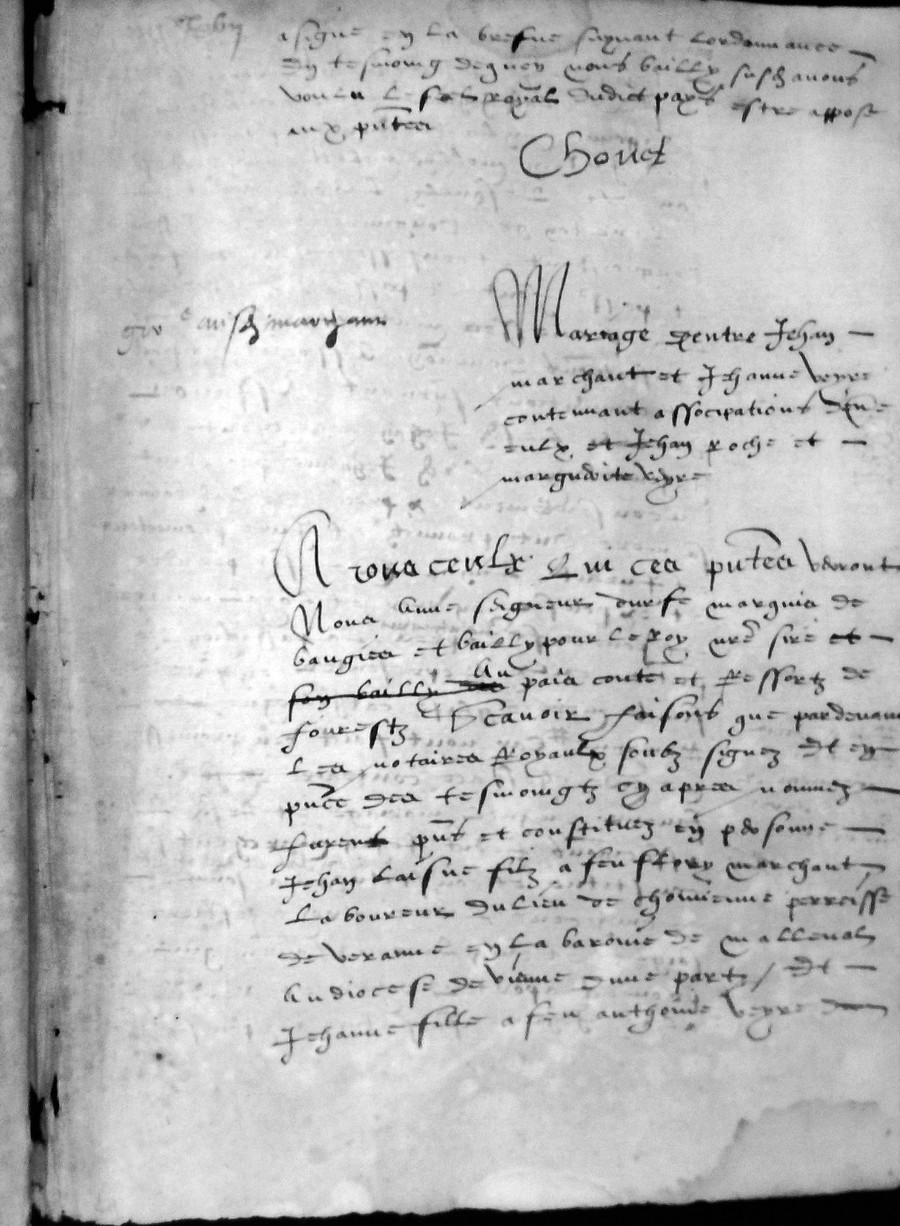 a signé en la brefve suyvant lordonnance
En tesmoing dequoy nous bailly susd avons
voulu le seel royal dudict pays estre apposé
aux pntes
Chovet
aud marchant
Mariage dentre Jehan
marchant et Jehanne Veyre
contenant associations dentre
eulx et Jehan Roche et
marguerite veyre
A tous ceulx Qui ces pntes verront
Nous Anne seigneur durfe marquis de
baugies et bailly pour le Roy nre sire et
son bailly au pais conté et Ressortz de
fourestz Scavoir faisons que pardevant
Les notaires Royaulx soubz signez Et en
pnce des tesmoingtz cy apres nommez
furent pns et constituez en personne
Jehan laisne filz a feu flory marchant
Laboureur du lieu de perroisse
de veranne en la baronie de malleval
Au diocese de vienne dune part / Et
Jehanne fille a feu anthoine Veyre